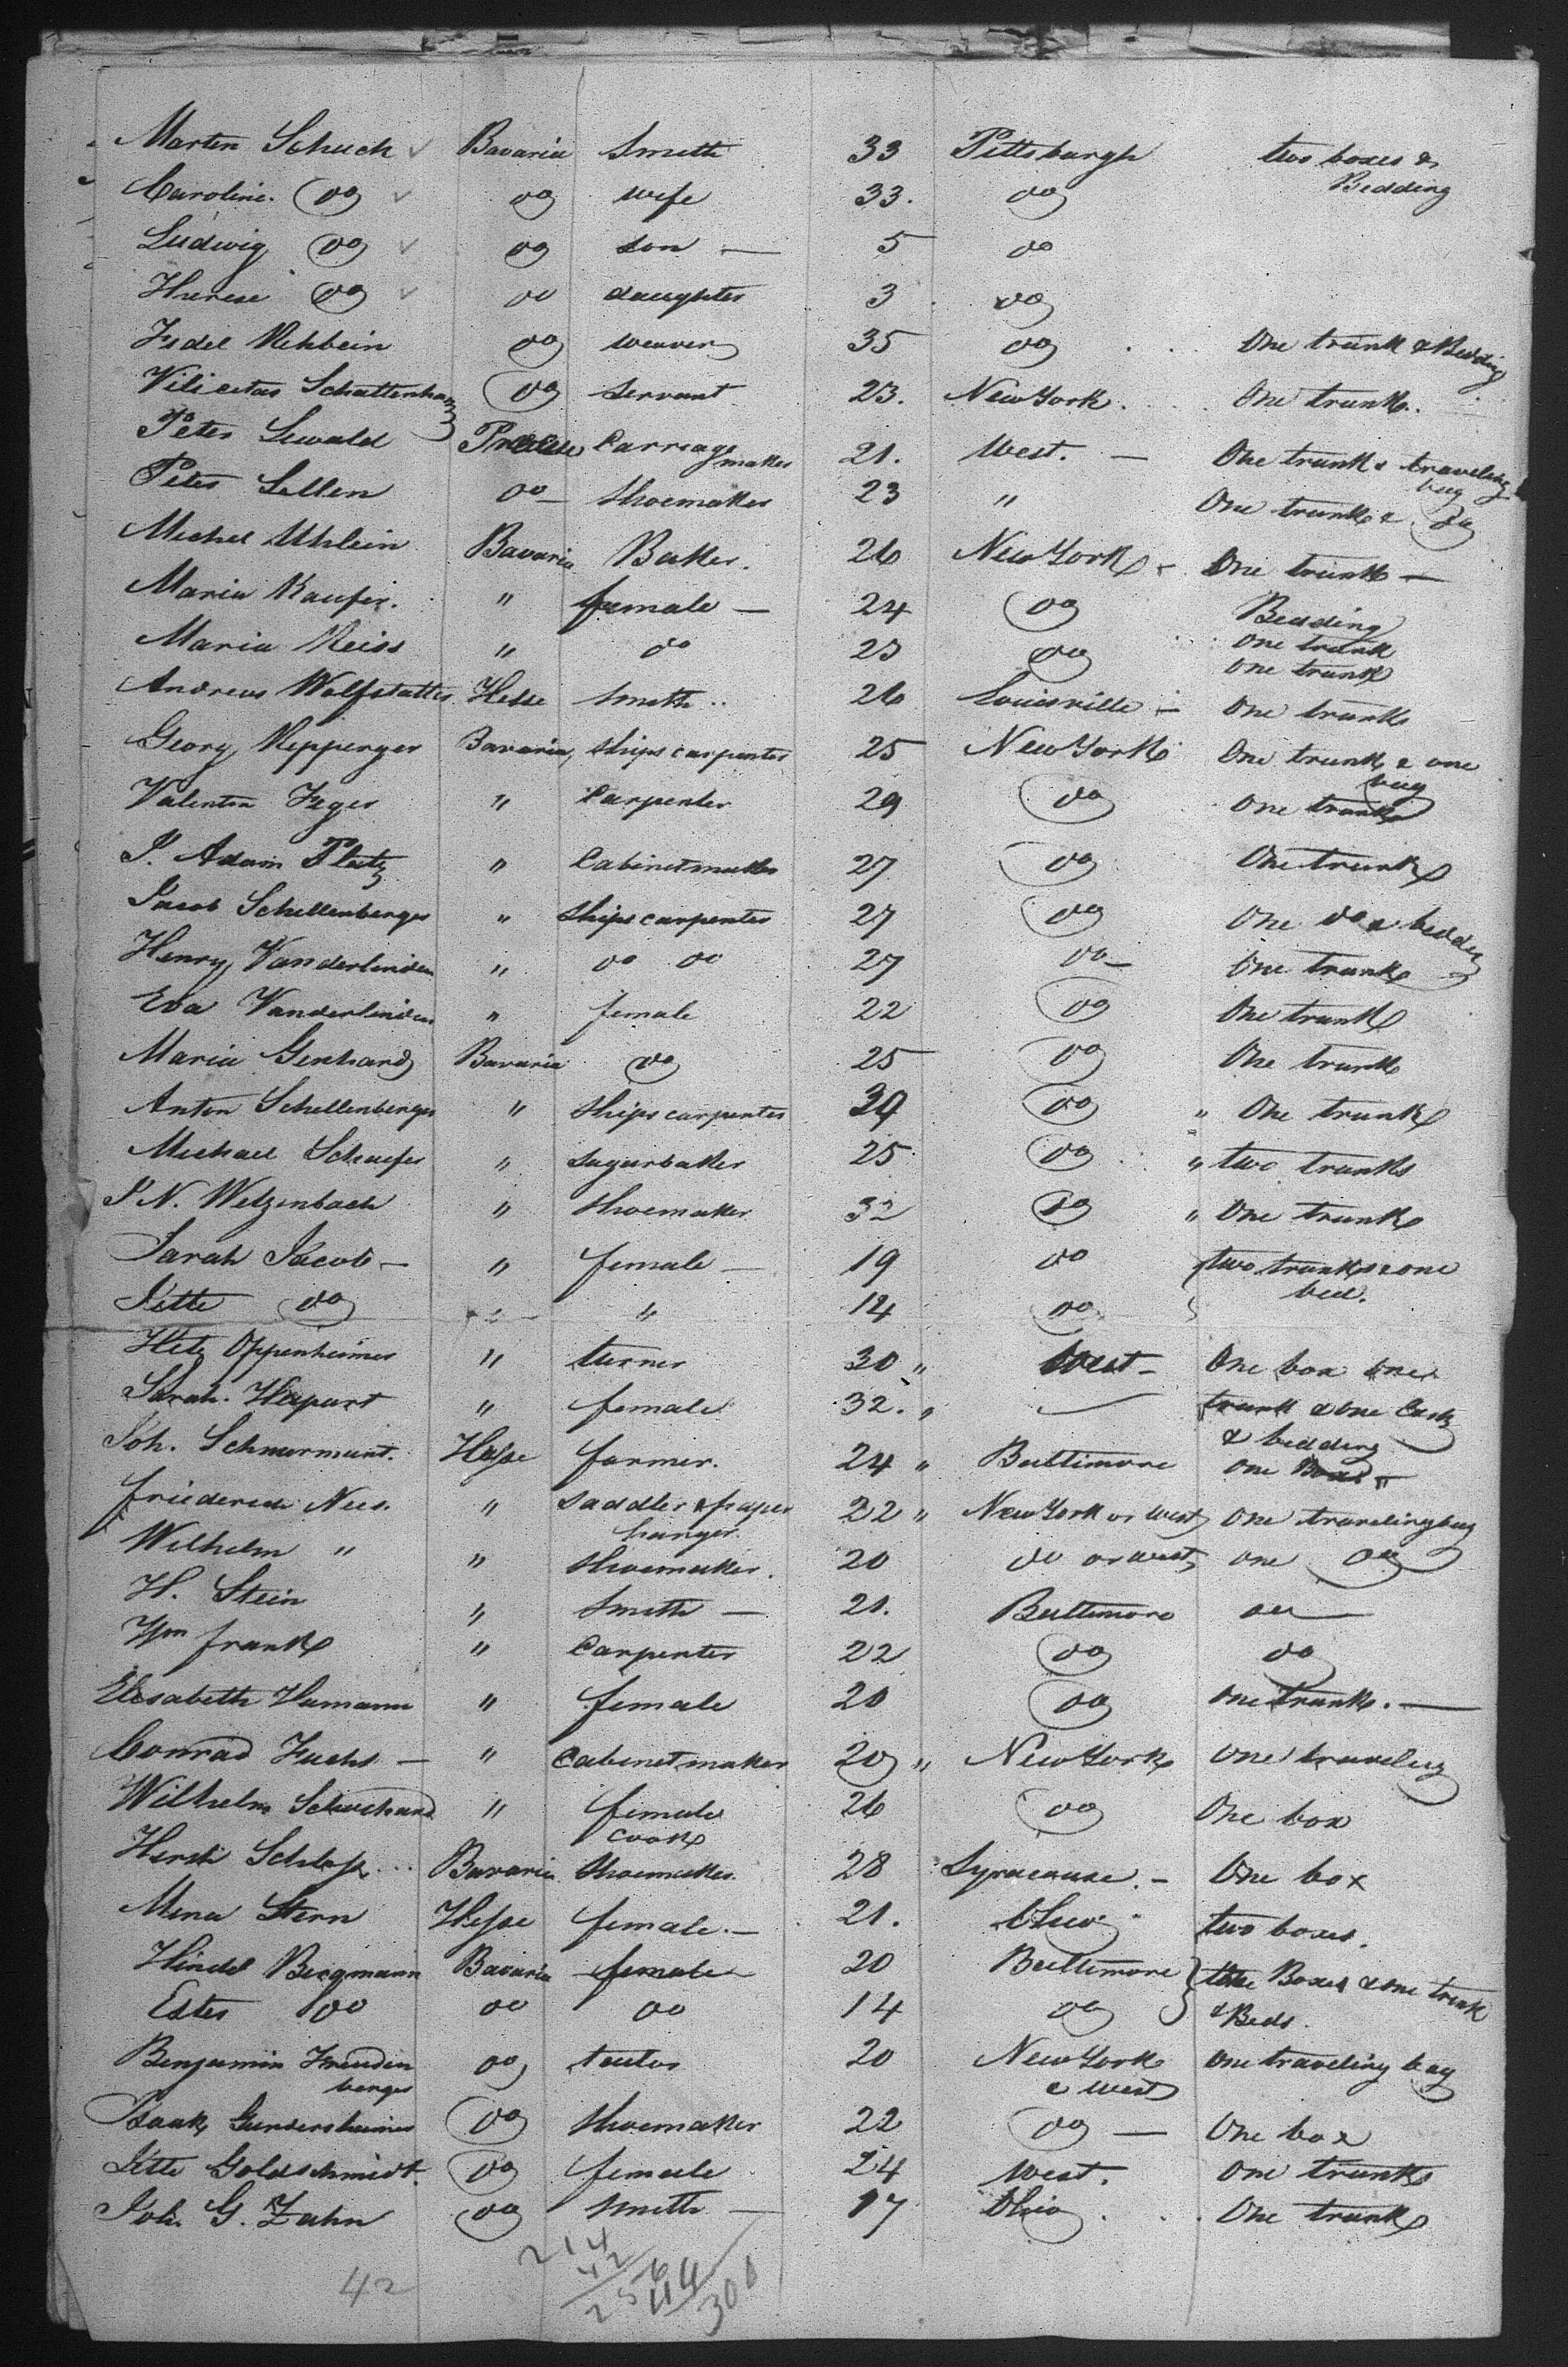 Marten Schuck Bavaria Smith 33 Pittsburgh two boxes &
Bedding
Caroline. do do wife 33. do
Ludwig do do son — 5 do
Therese do do daughter 3 do
Fidel Rehbein do weaver 35 do One trunk & Bedding
Schattenhan do servant 23. New York. One trunk.
Peter Lewald Carriage 21. West. — One trunk & traveling
maker bag
Peter Sellen do — Shoemaker 23 " One trunk & do
Michel Uhlein Bavaria Baker. 26 New York One trunk —
Maria Kaufer. " female — 24 do Bedding
one trunk
Maria Reiss " do 23 do one trunk
Andreas Wolfstatter Hesse Smith 26 Louisville — One trunk
Georg Repperger Bavaria, Ships carpenter 25 New York One trunk & one
bag
Valentin Feger " Carpenter 29 do One trunk
J. Adam " Cabinetmaker 27 do One trunk
Jacob Schellenberger " Ships carpenter 27 do One do & bedding
Henry Vanderlinden " do do 27 do — One trunk
Eva Vanderlinden " female 22 do One trunk
Maria Genhard Bavaria do 25 do One trunk
Anton Schellenberger " Ships carpenter do " One trunk
Michael Schaefer " Sugarbaker 25 do " two trunks
J N. Welzenbach " Shoemaker 32 do " One trunk
Sarah Jacob — " female — 19 do two trunks & one
bed.
Jette do " " 14 do
Hetz Oppenheimer " turner 30 " West — One box one
Sarah " female 32. " trunk & one Cask
& bedding
Joh. Schnurmant. Hesse farmer. 24 " Baltimore one
Friederich Nees. " Saddler & paper 22 " New York or West One traveling bag
hanger.
Wilhelm " " Shoemaker. 20 do or West one do
H. Stein " Smith — 21. Baltimore do —
Wm Frank " Carpenter 22 do do
Elisabeth Hamann " female 20 do one trunk. —
Conrad Fuchs — " Cabinetmaker 20 " New York one traveling
Wilhelm Schuchard " female 26 do One box
cook
Hersh Schloss Bavaria Shoemaker. 28 Syracuse. — One box
Mena Stern Hesse female. — 21. Ohio two boxes.
Hindel Bergmann Bavaria female 20 Baltimore Boxes & one trunk
Ester do do do 14 do & Beds.
Benjamin Freuden do 20 New York One traveling bag
berger & West
Isaak Gundersheimer do Shoemaker 22 do — One box
Jette Goldschmidt. do female 24 West. One trunk
Joh. G. Zahn do Smith — 17 Ohio One trunk
214
42 42
256
44
300